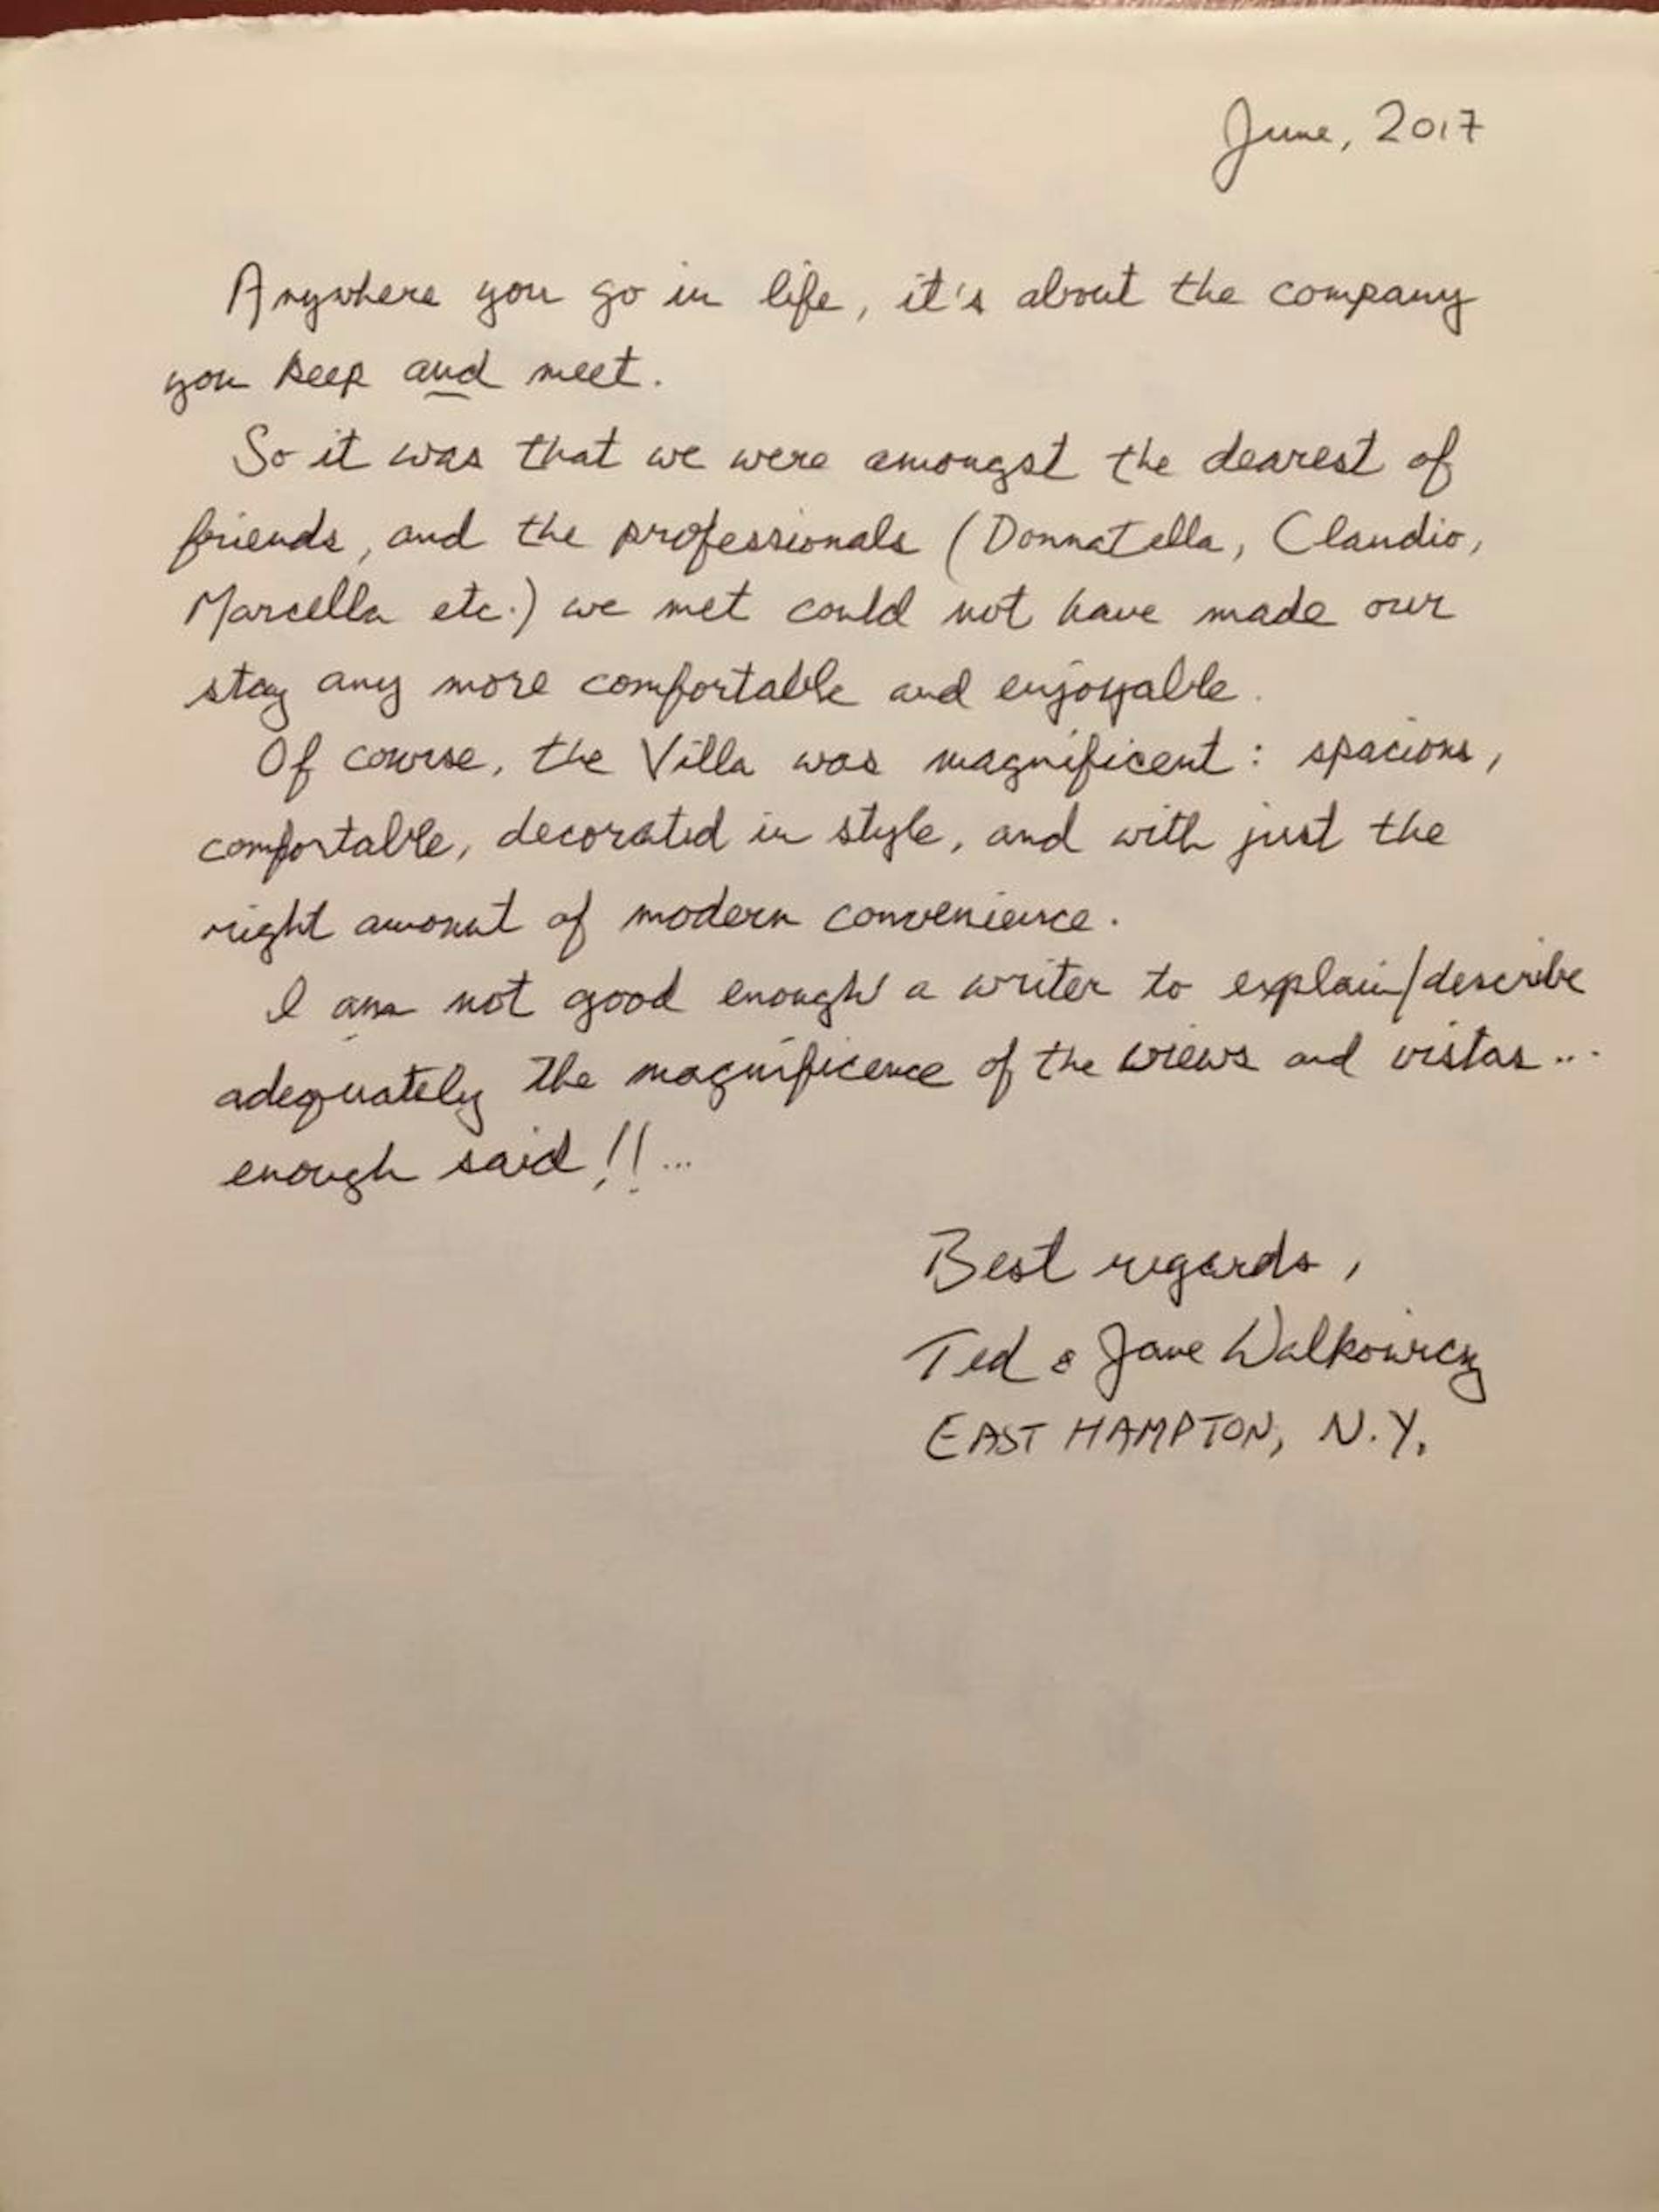 June, 2017
Anywhere you go in life, it's about the company
you keep and meet.
So it was that we were amongst the dearest of
friends, and the professionals (Donnatella, Claudio,
Marcella etc.) we met could not have made our
stay any more comfortable and enjoyable.
Of course, the Villa was magnificent: spacious,
comfortable, decorated in style, and with just the
right amount of modern convenience.
I am not good enough a writer to explain/describe
adequately the magnificence of the views and vistas...
enough said!!...
Best regards,
Ted & Jane Walkowicz
EAST HAMPTON, N.Y.